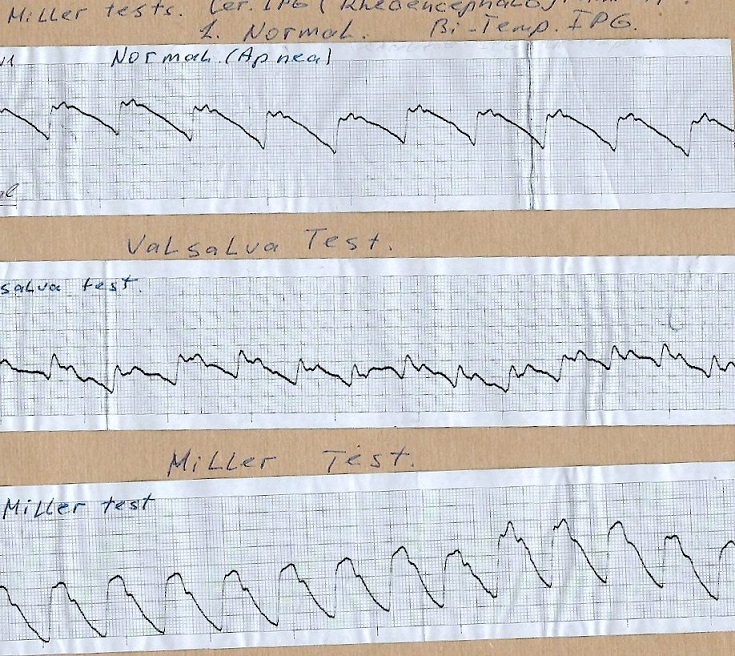 Miller tests. Cer. IPG (Rheoencephalog
1. Normal. Bi-Temp. IPG.
Normal. (Apnea)
Valsalva Test.
salva test.
Miller Test.
Miller test